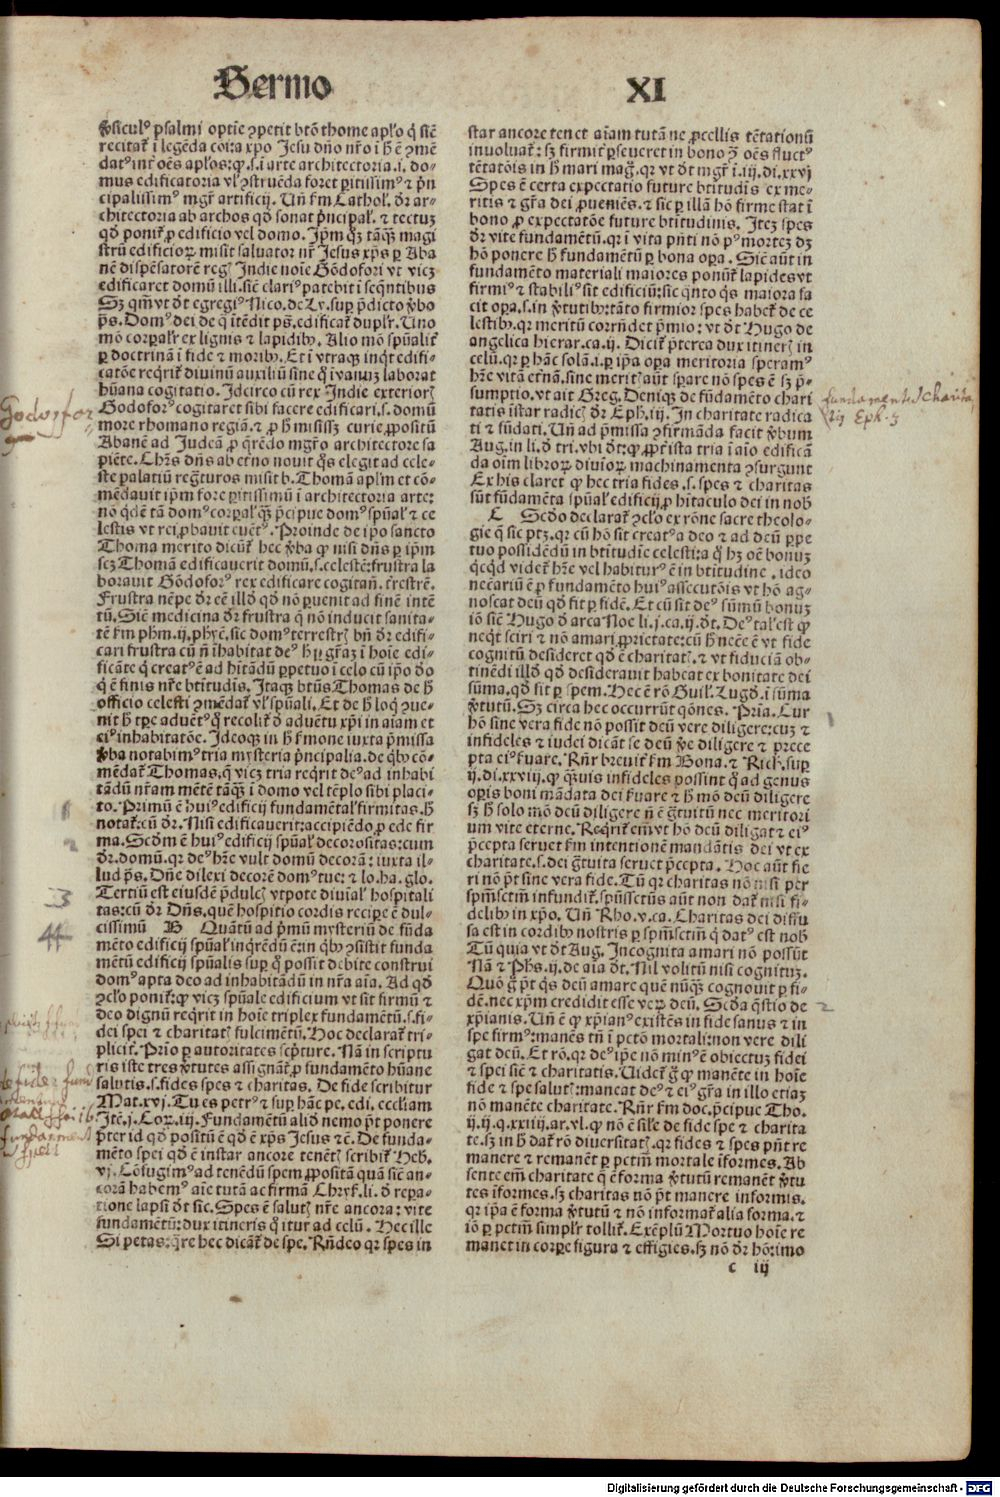 Sermo XI
ꝟsiculꝰ psalmi optĩe ꝯpetit btõ thome apło q̃ siẽ
recitat̃ ĩ legẽda coĩ:a xpo Jesu dño nr̃o ĩ h̃ ẽ ꝯmẽ
datꝰ inf̃ oẽs apłos:ꝙ.s.ĩ arte architectoria.i.do-
mus edificatoria vl̃ ꝯstruẽda foret ꝑitissimꝰ ⁊ p̃n
cipalissimꝰ mgr̃ artificij. Uñ fm̃ Cathol. dr̃ ar-
chitectoria ab archos qd̃ sonat p̃ncipal̃. ⁊ tectuꝫ
qd̃ ponit̃ ꝓ edificio vel domo. Ip̃m qꝫ̃ tãqꝫ̃ magi
strũ edificioꝝ misit saluator nr̃ Jesus xp̃s ꝑ Aba
nẽ dispẽsatorẽ reg̃ Indie noĩe Gõdofori vt vicꝫ
edificaret domũ illi.siẽ clariꝰ patebit ĩ seq̃ntibus
Sꝫ qm̃ vt dt̃ egregiꝰ Nico.de Ly.suꝑ p̃dicto ꝟbo
p̃s. Domꝰ dei de q̃ ĩtẽdit ps̃.edificat̃ duplr̃. Uno
mõ corꝑalr̃ ex lignis ⁊ lapidibꝰ. Alio mõ spũalit̃
ꝑ doctrinã ĩ fide ⁊ moribꝰ. Et ĩ vtraqꝫ inq̃t edifi-
catõe req̃rit̃ diuinũ auxiliũ sine q̃ ĩ vanuꝫ laborat
hũana cogitatio. Idcirco cũ rex Indie exterior̃
Godoforꝰ cogitaret sibi facere edificari.s.domũ
more rhomano regiã.⁊ ꝓ h̃ misissꝫ curie ꝓpositũ
Abanẽ ad Judeã ꝓ q̃rẽdo mgr̃o architectore sa
piẽte. Chr̃s dñs ab etño nouit q̃s elegit ad cele-
ste palatiũ reg̃turos misit b.Thomã apl̃m et cõ-
mẽdauit ip̃m fore ꝑitissimũ ĩ architectoria arte:
nõ qdẽ tã domꝰ corꝑal̃ qꝫ̃ p̃cipue domꝰ spũal̃ ⁊ ce
lestis vt rei ꝓbauit euẽtꝰ. Proinde de ip̃o sancto
Thoma merito dicũt̃ hec ꝟba ꝙ nisi dñs ꝑ ip̃m
scꝫ Thomã edificauerit domũ.s.celestẽ:frustra la
borauit Gõdoforꝰ rex edificare cogitañ.tr̃estrẽ.
Frustra nẽpe dr̃ eẽ illd̃ qd̃ nõ ꝑuenit ad finẽ intẽ
tũ. Siẽ medicina dr̃ frustra q̃ nõ inducit sanita-
tẽ fm̃ phm̃.ij.phyẽ.sic domꝰ terrestr̃ bñ dr̃ edifi-
cari frustra cũ ñ ĩhabitat deꝰ h̃ ꝑ gr̃aꝫ ĩ hoĩe edi-
ficãte q̃ creatꝰ ẽ ad hĩtãdũ ꝑpetuo ĩ celo cũ ip̃o do
q̃ ẽ finis nr̃e btĩtudis. Itaqꝫ btũs Thomas de h̃
officio celesti ꝯmẽdat̃ vl̃ spũali. Et de h̃ loq̃ ꝯue-
nit h̃ tꝑe aduẽtꝰ q̃ recolit̃ d̃ aduẽtu xp̃i in aĩam et
eiꝰ inhabitatõe. Ideoqꝫ in h̃ f̃mone iuxta p̃missa
ꝟba notabimꝰ tria mysteria p̃ncipalia.de qb̃ꝰ cõ-
mẽdat̃ Thomas.q̃ vicꝫ tria req̃rit deꝰ ad inhabi
tãdũ nr̃am mẽtẽ tãqꝫ̃ ĩ domo vel tẽplo sibi placi-
to. Primũ ẽ huiꝰ edificij fundamẽtal̃ firmitas.h̃
notat̃:cũ dr̃. Nisi edificauerit:accipiẽdo ꝓ ede fir
ma. Scd̃m ẽ huiꝰ edificij spũal̃ decorositas:cum
dr̃.domũ.qr deꝰ hr̃e vult domũ decorã: iuxta il-
lud p̃s. Dñe dilexi decorẽ domꝰ tue: ⁊ lo.ha.glo.
Tertiũ est eiusdẽ p̃dulc̃ vtpote diuial̃ hospitali
tas:cũ dr̃ Dñs.quẽ hospitio cordis recipe ẽ dul-
cissimũ B Quãtũ ad p̃mũ mysteriũ de fũda
mẽto edificij spũal̃ inq̃rẽdũ ẽ:in qb̃ꝰ ꝯsistit funda
mẽtũ edificij spũalis suꝑ q̃ possit debite construi
domꝰ apta deo ad inhabitãdũ in nr̃a aĩa. Ad qd̃
ꝯcl̃o ponit̃:ꝙ vicꝫ spũale edificium vt sit firmũ ⁊
deo dignũ req̃rit in hoĩe triplex fundamẽtũ.s.fi-
dei spei ⁊ charitat̃ fulcimẽtũ. Hoc declarat̃ tri-
plicit̃. Prĩo ꝑ autoritates sc̃pture. Nã in scriptu
ris iste tres ꝟtutes assignãt̃ ꝓ fundamẽto hũane
salutis.s.fides spes ⁊ charitas. De fide scribitur
Mat.xvj. Tu es petrꝰ ⁊ suꝑ hãc pe.edi.ecc̃liam
Itẽ.j.Coꝝ.iij. Fundamẽtũ aliđ nemo p̃t ponere
p̃ter id qd̃ positũ ẽ qd̃ ẽ xp̃s Jesus ⁊ẽ. De funda-
mẽto spei qd̃ ẽ instar ancore tenẽt̃ scribit̃ Heb.
vj. Cõfugimꝰ ad tenẽdũ spem ꝓpositã quã siẽ an-
corã habemꝰ aĩe tutã ac firmã Chrys̃.li.d̃ repa-
tione lapsi dt̃ sic. Spes ẽ salut̃ nr̃e ancora: vite
fundamẽtũ:dux itineris q̃ itur ad celũ. Hec ille
Si petas:q̃re hec dicãt̃ de spe. Rñdeo qr spes in
star ancore tenet aĩam tutã ne ꝓcellis tẽtationũ
inuoluat̃: sꝫ firmit̃ ꝑseueret in bono ꝯ̃ oẽs fluctꝰ
tẽtatõis in h̃ mari mag̃. qr vt dt̃ mgr̃ ĩ.iij.di.xxvj
Spes ẽ certa expectatio future btĩtudis ex me-
ritis ⁊ gr̃a dei ꝓueniẽs. ⁊ sic ꝑ illã hõ firme stat ĩ
bono ꝓ expectatõe future btitudinis. Iteꝫ spes
dr̃ vite fundamẽtũ.qr ĩ vita pñti nõ pꝰ mortez dꝫ
hõ ponere h̃ fundamẽtũ ꝑ bona oꝑa. Siẽ aũt in
fundamẽto materiali maiores ponũt̃ lapides vt
firmiꝰ ⁊ stabiliꝰ sit edificiũ:sic q̃nto q̃s maiora fa
cit oꝑa.s.in ꝟtutibꝰ:tãto firmior spes habet̃ de ce
lestibꝰ.qr meritũ corrñdet p̃mio: vt dt̃ Hugo de
angelica hierar.ca.ij. Dicit̃ p̃terea dux itiner̃ in
celũ.qr ꝑ hãc solã.i.ꝑ ip̃a oꝑa meritoria speramꝰ
hr̃e vitã eternã.sine merit̃ aũt sꝑare nõ spes ẽ sꝫ p̃-
sumptio.vt ait Greg. Deniqꝫ de fũdamẽto chari
tatis ĩstar radic̃ dr̃ Eph.iij. In charitate radica
ti ⁊ fũdati. Uñ ad p̃missa ꝯfirmãda facit ꝟbum
Aug.in li.d̃ tri.vbi dt̃:ꝙ ꝓpt̃ ista tria ĩ aĩo edificã
da oĩm libroꝝ diuinoꝝ machinamenta ꝯsurgunt
Ex his claret ꝙ hec tria fides.s.spes ⁊ charitas
sũt fũdamẽta spũal̃ edificij ꝓ hĩtaculo dei in nob̃
C Scd̃o declarat̃ ꝯcl̃o ex rõne sacre theolo-
gie q̃ sic ptꝫ.qr cũ hõ sit creatꝰ a deo ⁊ ad deũ ꝑpe
tuo possidẽdũ in btĩtudĩe celesti:a q̃ hꝫ oẽ bonuꝫ
qcqd̃ videt̃ hr̃e vel habiturꝰ ẽ in btĩtudine.ideo
necẽariũ ẽ ꝓ fundamẽto huiꝰ assecutõis vt hõ ag-
noscat deũ qd̃ fit ꝑ fidẽ. Et cũ sit deꝰ sũmũ bonuꝫ
iõ siẽ Hugo d̃ arca Noe li.j.ca.ij.dt̃. Deꝰ tal̃ est ꝙ
neq̃t sciri ⁊ nõ amari ꝓprietate:cũ h̃ necẽ ẽ vt fide
cognitũ desideret qd̃ ẽ charitat̃.⁊ vt fiduciã ob-
tinẽdi illd̃ qd̃ desiderauit habeat ex bonitate dei
sũma.qd̃ fit ꝑ spem. Hec ẽ rõ Guil̃.Lugd̃.ĩ sũma
ꝟtutũ. Sꝫ circa hec occurrũt qõnes. Prĩa. Cur
hõ sine vera fide nõ possit deũ vere diligere:cuꝫ ⁊
infideles ⁊ iudei dicãt se deũ ꝟe diligere ⁊ prece
pta eiꝰ f̃uare. Rñr breuit̃ fm̃ Bona.⁊ Rich̃.suꝑ
ij.di.xxviij.ꝙ q̃uis infideles possint q̃ ad genus
oꝑis boni mãdata dei f̃uare ⁊ h̃ mõ deũ diligere
sꝫ h̃ solo mõ deũ diligere ñ ẽ g̃tuitũ nec meritori
um vite eterne. Reqrit̃ em̃ vt hõ deũ diligat ⁊ eiꝰ
p̃cepta seruet fm̃ intentionẽ mandãtis dei vt ex
charitate.s.dei g̃tuita seruet p̃cepta. Hoc aũt fie
ri nõ p̃t sine vera fide. Tũ qr charitas nõ nisi per
spm̃sctm̃ infundit̃.spũssctũs aũt non dat̃ nisi fi-
delibꝰ in xp̃o. Uñ Rho.v.ca. Charitas dei diffu
sa est in cordibꝰ nostris ꝑ spm̃sctm̃ q̃ datꝰ est nob̃
Tũ quia vt dt̃ Aug. Incognita amari nõ possũt
Nã ⁊ Phs̃.ij.de aĩa dt̃. Nil volitũ nisi cognituꝫ.
Quõ g̃ p̃t q̃s deũ amare quẽ nũqꝫ̃ cognouit ꝑ fi-
dẽ.nec xp̃m credidit esse veꝝ deũ. Scd̃a q̃stio de
xp̃ianis. Uñ ẽ ꝙ xp̃ianꝰ existẽs in fide sanus ⁊ in
spe firmꝰ:manẽs tñ ĩ pctõ mortali:non vere dili
gat deũ. Et rõ.qr deꝰ ip̃e nõ minꝰ ẽ obiectuꝫ fidei
⁊ spei siẽ ⁊ charitatis. Uidet̃ g̃ ꝙ manẽte in hoĩe
fide ⁊ spe salut̃:maneat deꝰ ⁊ eiꝰ gr̃a in illo etiaꝫ
nõ manẽte charitate. Rñr fm̃ doc.p̃cipue Tho.
ij.ij.q.xxiiij.ar.vl.ꝙ nõ ẽ sil̃e de fide spe ⁊ charita
te.sꝫ in h̃ dat̃ rõ diuersitat̃.qr fides ⁊ spes pñt re
manere ⁊ remanẽt ꝑ pctm̃ mortale ĩformes. Ab
sente em̃ charitate q̃ ẽ forma ꝟtutũ remanẽt ꝟtu
tes ĩformes.sꝫ charitas nõ p̃t manere informis.
qr ip̃a ẽ forma ꝟtutũ ⁊ nõ informat̃ alia forma.⁊
iõ ꝑ pctm̃ simplr̃ tollit̃. Exẽplũ Mortuo hoĩe re
manet in corꝑe figura ⁊ effigies.sꝫ nõ dr̃ hõ:imo
c iij
Godoffor
fundamentũ Charita
tis Eph. 3
1
2
3
44
Digitalisierung gefördert durch die Deutsche Forschungsgemeinschaft - DFG